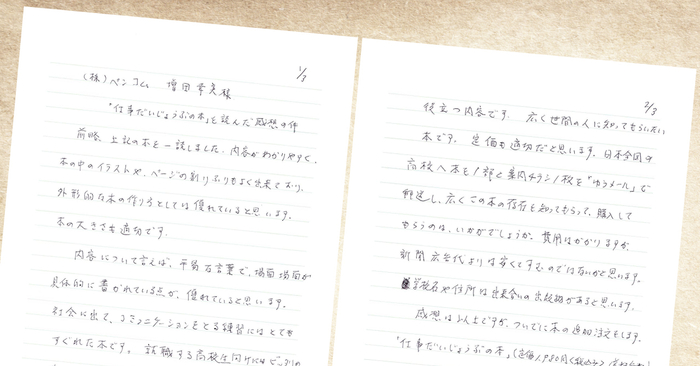 1/3
(株)ペンコム 増田幸美様
「仕事だいじょうぶの本」を読んだ感想の件
前略、上記の本を一読しました。内容がわかりやすく、
本の中のイラストや、ページの割りふりもよく出来ており、
外形的な本の作り方としては優れていると思います。
本の大きさも適切です。
内容について言えば、平易な言葉で、場面場面が
具体的に書かれている点が、優れていると思います。
社会に出て、コミュニケーションをとる練習にはとても
すぐれた本です。就職する高校生向けにはピッタリの
2/3
役立つ内容です。広く世間の人に知ってもらいたい
本です。定価も適切だと思います。日本全国の
高校へ本を1部と案内チラシ1枚を「ゆうメール」で
郵送し、広くこの本の存在を知ってもらって、購入して
もらうのは、いかがでしょうか。費用はかかりますが、
新聞広告代よりは安くてすむのではないかと思います。
学校名や住所は出来合いの出版物があると思います。
感想は以上ですが、ついでに本の追加注文もします。
「仕事だいじょうぶの本」(定価1,980円<税込み>